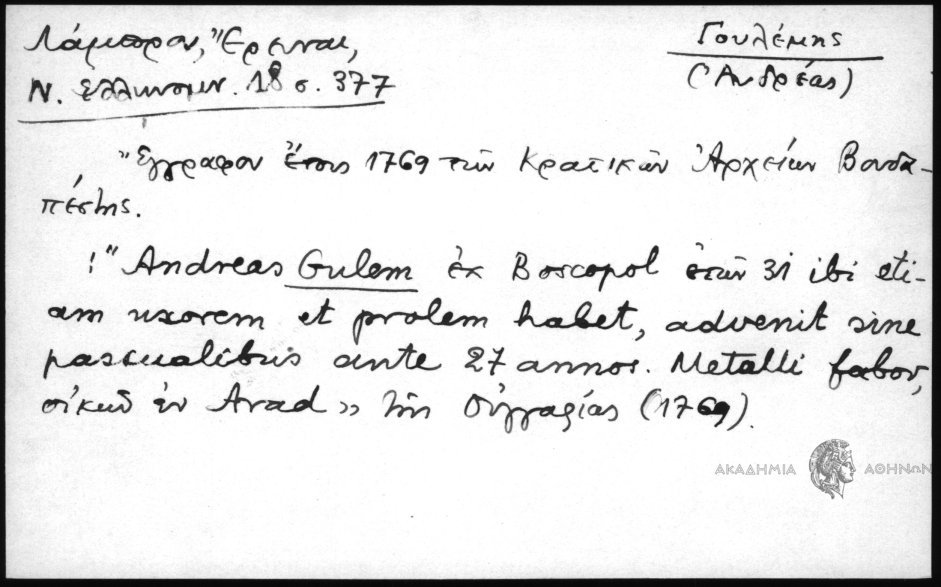 Λάμπρου, Ἔρευναι,
Ν. Ἑλληνομν. 18 σ. 377
Γουλέμης
(Ἀνδρέας)
Ἔγγραφον ἔτους 1769 τῶν Κρατικῶν Ἀρχείων Βουδα-
πέστης.
!" Andreas Gulem ἐκ Boscopol ἐτῶν 31 ibi eti-
am uxorem et prolem habet, advenit sine
pascualibus ante 27 annos. Metalli fabor,
οἰκῶν ἐν Arad» τῆς Οὑγγαρίας (1769).
ΑΚΑΔΗΜΙΑ ΑΘΗΝΩΝ